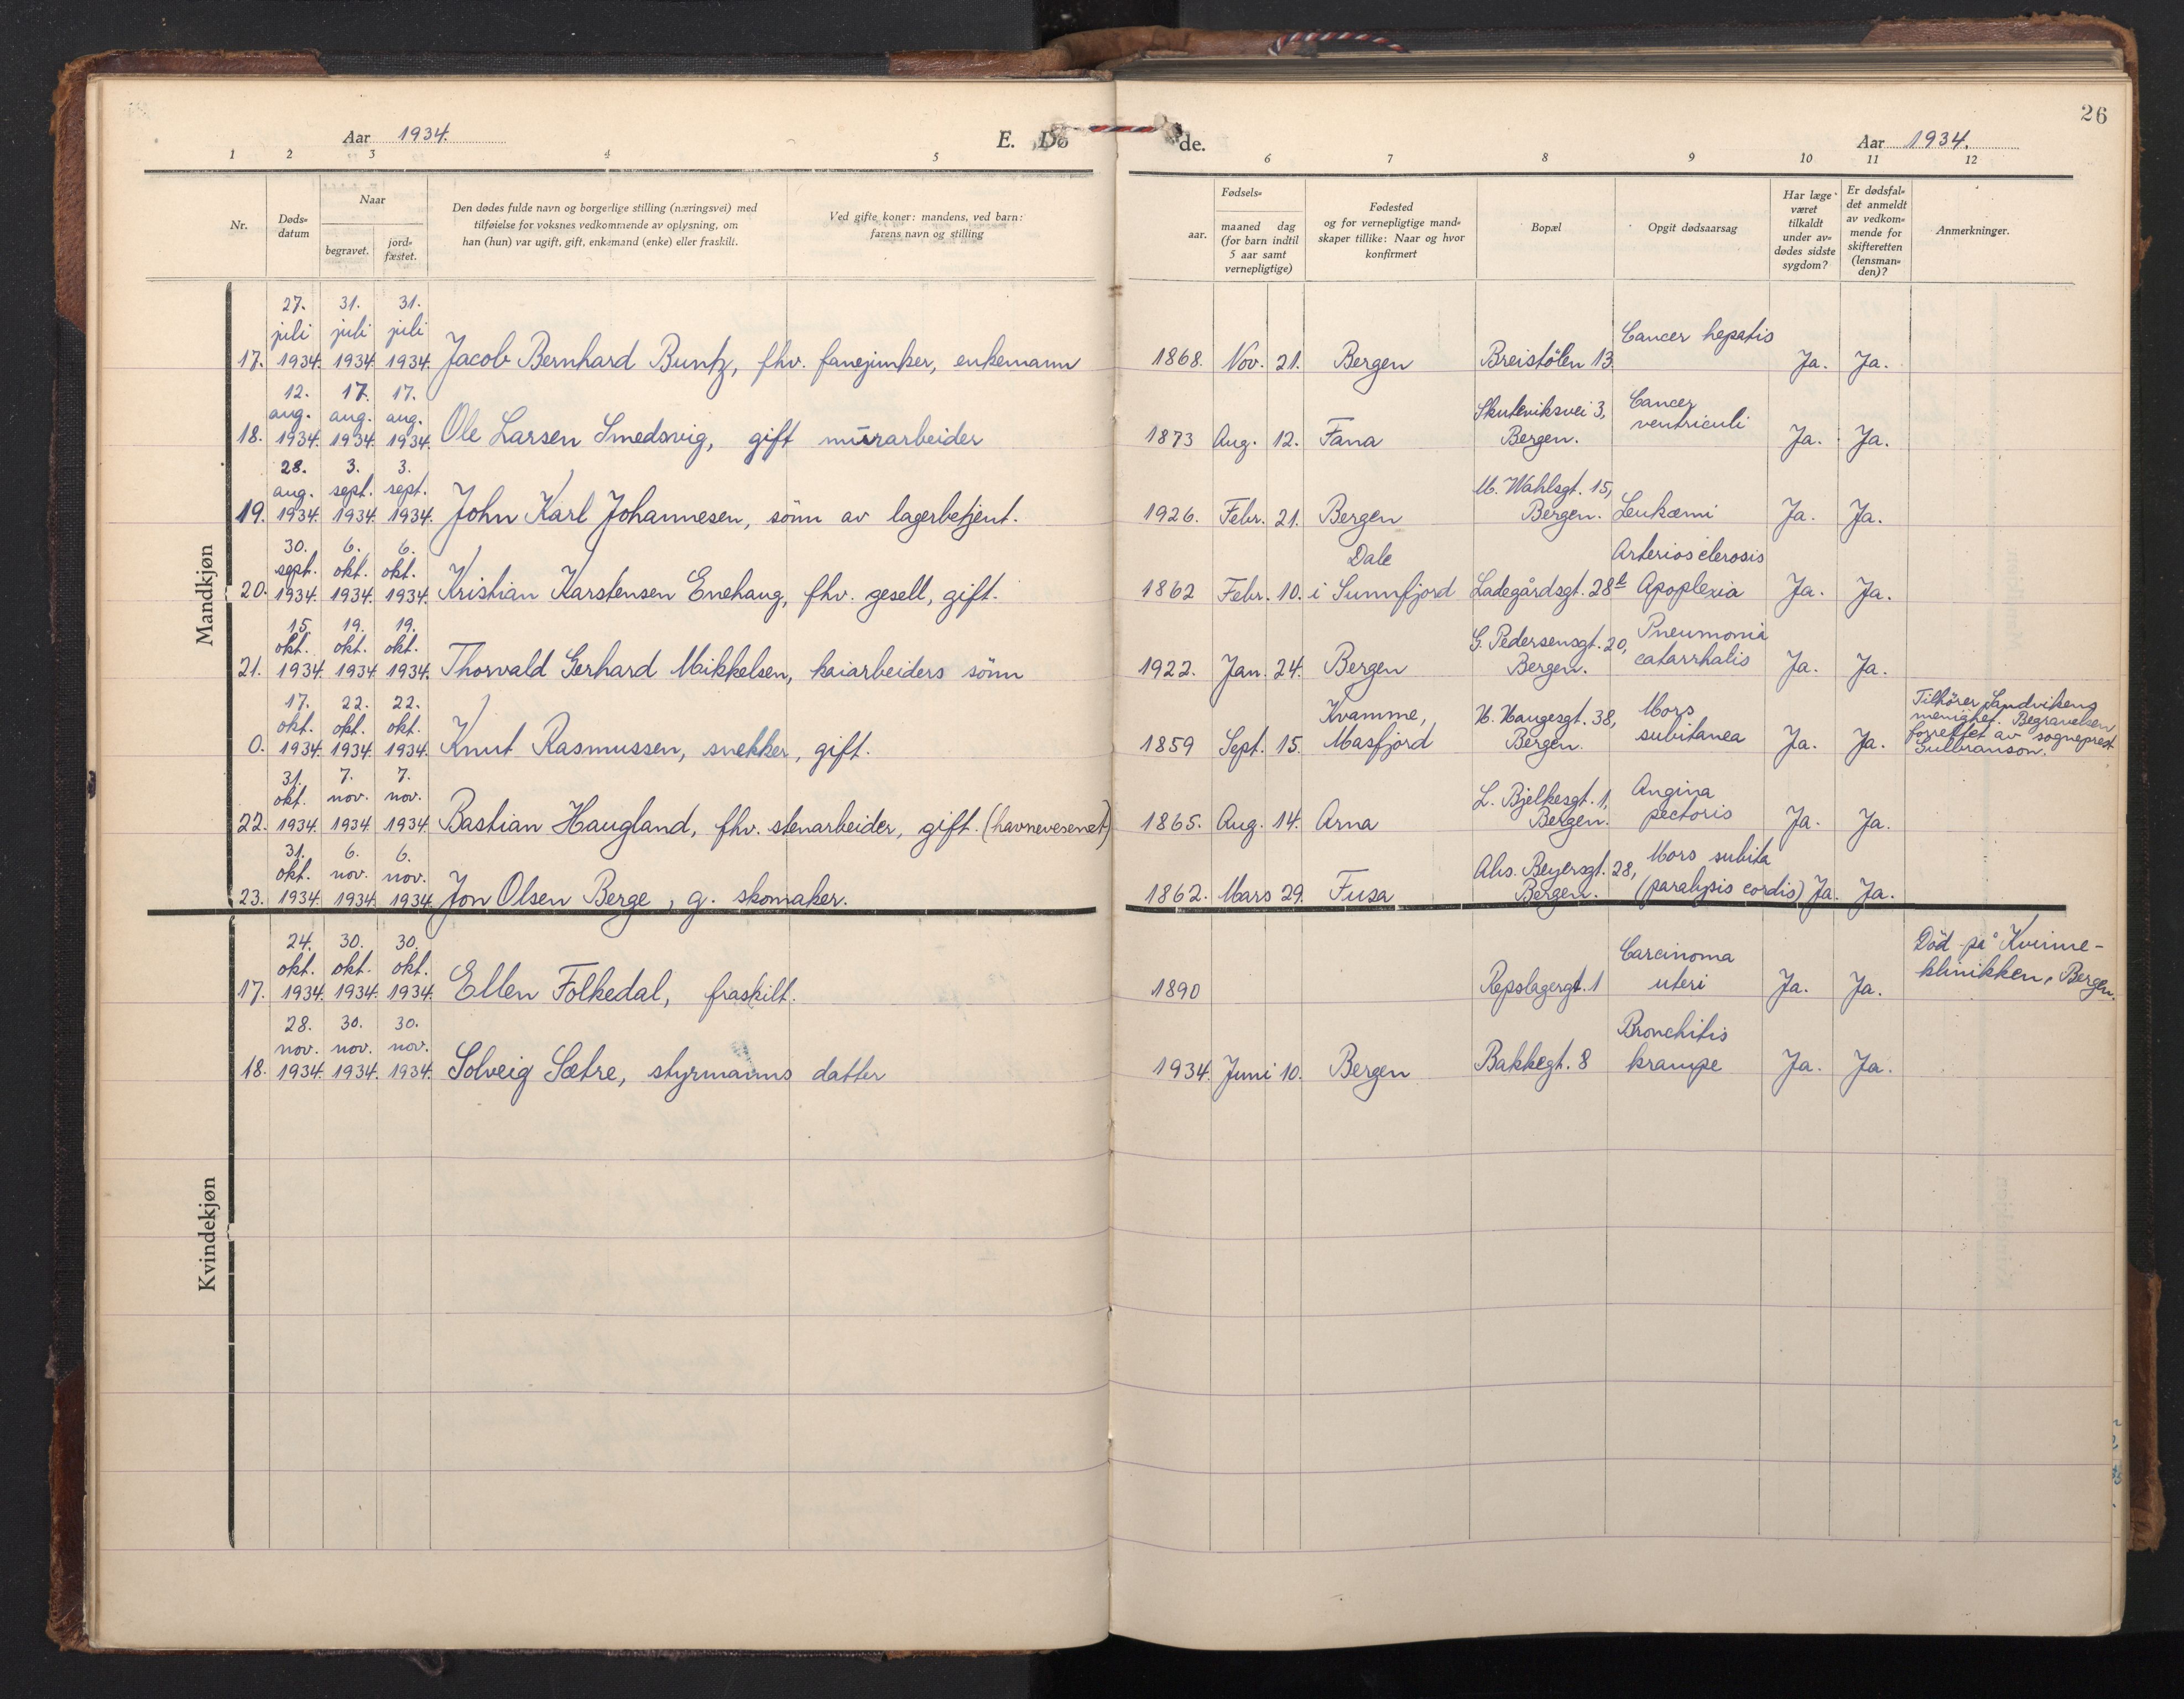 26
Aar 1934.
E. Dø
de.
Aar 1934.
1 2 3 4 5
6 7 8 9 10 11 12
Nr.
Døds-
datum
Naar
begravet.
jord-
fæstet.
Den dødes fulde navn og borgerlige stilling (næringsvei) med
tilføielse for voksnes vedkommende av oplysning, om
han (hun) var ugift, gift, enkemand (enke) eller fraskilt.
Ved gifte koner: mandens, ved barn:
farens navn og stilling
Fødsels-
aar.
maaned dag
(for barn indtil
5 aar samt
vernepligtige)
Fødested
og for vernepligtige mand-
skaper tillike: Naar og hvor
konfirmert
Bopæl
Opgit dødsaarsag
Har læge
været
tilkaldt
under av-
dødes sidste
sygdom?
Er dødsfal-
det anmeldt
av vedkom-
mende for
skifteretten
(lensman-
den)?
Anmerkninger.
Mandkjøn
27. 31. 31.
juli juli juli
Cancer hepatis
17. 1934. 1934. 1934. Jacob Bernhard Buntz, fhv. fanejunker, enkemann 1868. Nov. 21. Bergen Breistølen 13. Ja. Ja.
12. 17. 17.
aug. aug. aug. Skuteviksvei 3, Cancer
18. 1934. 1934. 1934. Ole Larsen Smedsvig, gift murarbeider 1873 Aug. 12. Fana Bergen. ventriculi Ja. Ja.
28. 3. 3.
aug. sept. sept. M. Wahlsgt. 15,
19. 1934. 1934. 1934. John Karl Johannesen, sønn av lagerbetjent. 1926. Febr. 21. Bergen Bergen. Leukæmi Ja. Ja.
30. 6. 6.
sept. okt. okt. Dale Arteriosclerosis
20. 1934. 1934. 1934. Kristian Karstensen Enehaug, fhv. gesell, gift. 1862 Febr. 10. i Sunnfjord Ladegårdsgt. 28b Apoplexia Ja. Ja.
15. 19. 19.
okt. okt. okt. G. Pedersensgt. 20, Pneumonia
21. 1934. 1934. 1934. Thorvald Gerhard Mikkelsen, kaiarbeiders sønn 1922. Jan. 24. Bergen Bergen. catarrhalis Ja. Ja.
17. 22. 22.
okt. okt. okt. Kvamme, H. Haugesgt. 38, Mors
0. 1934. 1934. 1934. Knut Rasmussen, snekker, gift. 1859 Sept. 15. Masfjord Bergen. subitanea Ja. Ja.
Tilhører Sandvikens
menighet. Begravelsen
forrettet av sogneprest
Gulbranson.
31. 7. 7.
okt. nov. nov. L. Bjelkesgt. 1, Angina
22. 1934. 1934 1934. Bastian Haugland, fhv. stenarbeider, gift. (havnevesenet) 1865. Aug. 14. Arna Bergen. pectoris Ja. Ja.
31. 6. 6.
okt. nov. nov. Abs. Beyersgt. 28, Mors subita
23. 1934. 1934. 1934. Jon Olsen Berge, g. skomaker. 1862. Mars 29. Fusa Bergen. (paralysis cordis) Ja. Ja.
Kvindekjøn
24. 30. 30.
okt. okt. okt. Carcinoma
17. 1934. 1934. 1934. Ellen Folkedal, fraskilt. 1890 Repslagergt. 1 uteri Ja. Ja.
Død på Kvinne-
klinikken, Bergen.
28. 30. 30.
nov. nov. nov. Bronchitis
18. 1934. 1934. 1934. Solveig Sætre, styrmanns datter 1934. Juni 10. Bergen Bakkegt. 8 krampe Ja. Ja.